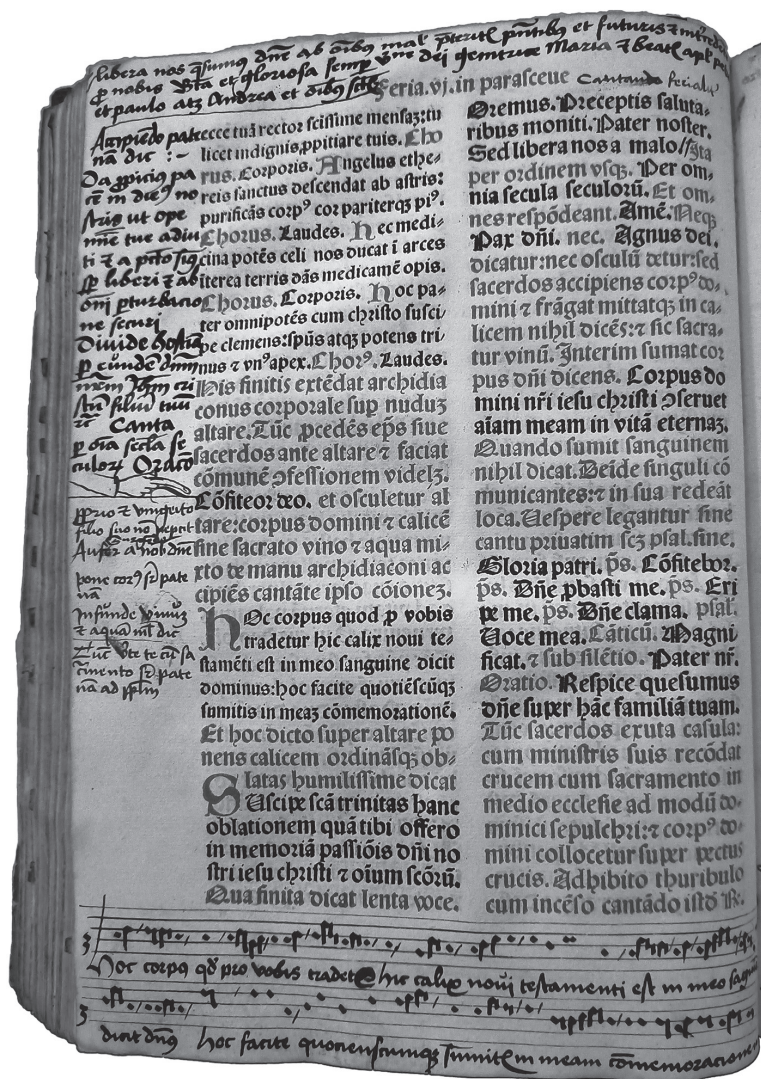 libera nos qsumus dne ab oibus mal' pteritis pntibus et futuris &
p nobis bta et gloriosa semp vgne dei genitrice Maria & beatis aplis
et paulo atq Andrea et oibus
Feria.vj.in parasceue
Cantando
Accipiedo pate
na dic :-
Da ppicius pa
ce in dieb no
stris ut ope
mie tue adiu
ti & a pcto
liberi & ab
oni pturbacio
ne securi
Diuide hostia
p eunde dnm
nrm Jhm cri
stu filiu tuu
Canta
p oia secla se
culoru Oracio
pprio & vnigenito
filio suo no
Aufer a nob dne
pone corp9 sr pate
na
Infunde vinuz
& aqua dic
ecce tuā rector ſciſſime menſaz:tu
licet indignis,ppitiare tuis. Cho
rus. Corporis. Angelus ethe-
reis ſanctus deſcendat ab aſtris:
purificās corpꝰ cor pariterqꝫ piꝰ.
Chorus. Laudes. Hec medi-
cina potēs celi nos ducat ī arces
iterea terris dās medicamē opis.
Chorus. Corporis. Hoc pa-
ter omnipotēs cum chriſto ſuſci
pe clemens:ſpūs atqꝫ potens tri
nus ⁊ vnꝰ apex. Chorꝰ. Laudes.
His finitis extēdat archidia
conus corporale ſup nuduꝫ
altare. Tūc ꝓcedēs ep̄s ſiue
ſacerdos ante altare ⁊ faciat
cōmunē ꝯfeſſionem videlꝫ.
Cōfiteor deo. et oſculetur al
tare:corpus domini ⁊ calicē
ſine ſacrato vino ⁊ aqua mi-
xto de manu archidiaconi ac
cipiēs cantāte ipſo cōionez.
HOc corpus quod ꝓ vobis
tradetur hic calix noui te-
ſtamēti eſt in meo ſanguine dicit
dominus:hoc facite quotiēſcūqꝫ
ſumitis in meaꝫ cōmemorationē.
Et hoc dicto ſuper altare po
nens calicem ordināſqꝫ ob-
latas humilliſſime dicat
SUſcipe ſcā trinitas hanc
oblationem quā tibi offero
in memoriā paſſiōis dn̄i no
ſtri ieſu chriſti ⁊ oīum ſcōrū.
Qua finita dicat lenta voce.
Oremus. Preceptis ſaluta-
ribus moniti. Pater noſter.
Sed libera nos a malo// Iſta
per ordinem vſqꝫ. Per om-
nia ſecula ſeculorū. Et om-
nes reſpōdeant. Amē. Neqꝫ
Pax dn̄i. nec. Agnus dei.
dicatur:nec oſculū detur:ſed
ſacerdos accipiens corpꝰ do-
mini ⁊ frāgat mittatqꝫ in ca-
licem nihil dicēs:⁊ ſic ſacra-
tur vinū. Interim ſumat cor
pus dn̄i dicens. Corpus do
mini nr̄i ieſu chriſti ꝯſeruet
aīam meam in vitā eternaꝫ.
Quando ſumit ſanguinem
nihil dicat. Deīde ſinguli cō
municantes:⁊ in ſua redeāt
loca. Ueſpere legantur ſine
cantu priuatim ſcꝫ pſal. ſine.
Gloria patri. p̄s. Cōfitebor.
p̄s. Dn̄e ꝓbaſti me. p̄s. Eri
pe me. p̄s. Dn̄e clama. pſal.
Uoce mea. Cāticū. Magni
ficat. ⁊ ſub ſilētio. Pater nr̄.
Oratio. Reſpice queſumus
dn̄e ſuper hāc familiā tuam.
Tūc ſacerdos exuta caſula:
cum miniſtris ſuis recōdat
crucem cum ſacramento in
medio eccleſie ad modū do-
minici ſepulchri:⁊ corpꝰ do-
mini collocetur ſuper pectus
crucis. Adhibito thuribulo
cum incēſo cantādo iſtō ℟.
Hoc corpꝰ qd pro vobis tradet hic calix noui teſtamenti eſt in meo
dicit dn̄s hoc facite quotienſcumqꝫ ſumitis in meam cōmemoracione